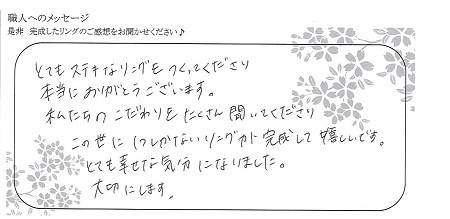 職人へのメッセージ
是非 完成したリングのご感想をお聞かせください♪
とてもステキなリングをつくってくださり
本当にありがとうございます。
私たちのこだわりをたくさん聞いてくださり
この世に1つしかないリングが完成して嬉しいです。
とても幸せな気分になりました。
大切にします。